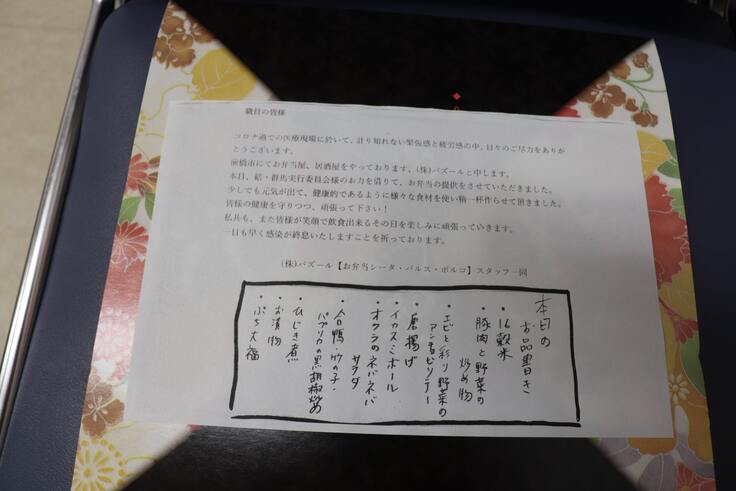 職員の皆様
コロナ過での医療現場に於いて、計り知れない緊張感と疲労感の中、日々のご尽力をありが
とうございます。
前橋市にてお弁当屋、居酒屋をやっております、(株)バズールと申します。
本日、結・群馬実行委員会様のお力を借りて、お弁当の提供をさせていただきました。
少しでも元気が出て、健康的であるように様々な食材を使い精一杯作らせて頂きました。
皆様の健康を守りつつ、頑張って下さい!
私共も、また皆様が笑顔で飲食出来るその日を楽しみに頑張っていきます。
一日も早く感染が終息いたしますことを祈っております。
(株)バズール【お弁当シータ・バルス・ポルコ】スタッフ一同
本日の
お品書き
・16穀米
・豚肉と野菜の
炒め物
・エビと彩り野菜の
アンチョビソテー
・唐揚げ
・イカスミボール
・オクラのネバネバ
サラダ
・合鴨 竹の子・
パプリカの黒胡椒炒め
・ひじき煮
・お漬物
・ぷち大福